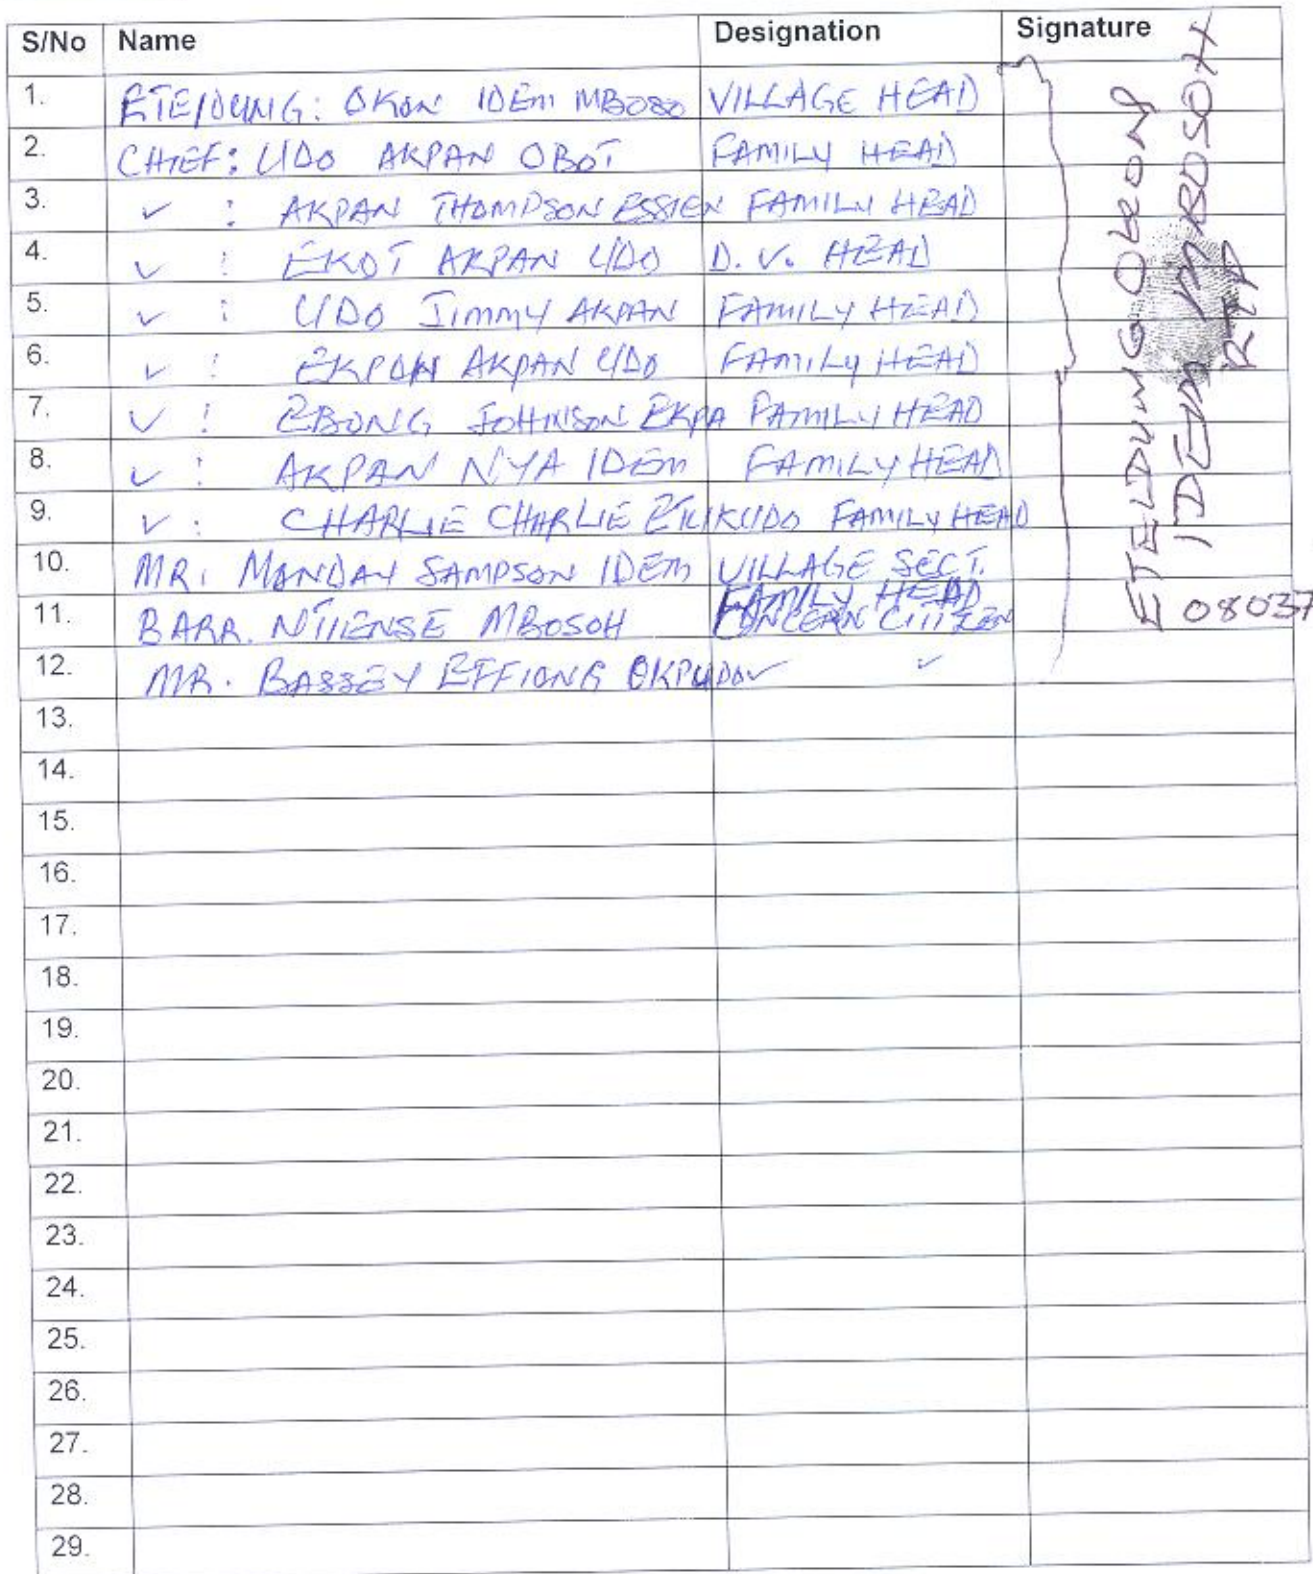 S/No Name Designation Signature
1. ETE/DUNG: OKON IDEM MBOSO VILLAGE HEAD
2. CHIEF: UDO AKPAN OBOT FAMILY HEAD
3. ✓ : AKPAN THOMPSON ESSIEN FAMILY HEAD
4. ✓ : EKOT AKPAN UDO D.V. HEAD
5. ✓ : UDO JIMMY AKPAN FAMILY HEAD
6. ✓ : EKPON AKPAN UDO FAMILY HEAD
7. ✓ : EBONG JOHNSON EKPA FAMILY HEAD
8. ✓ : AKPAN NYA IDEM FAMILY HEAD
9. ✓ : CHARLIE CHARLIE FAMILY HEAD
10. MR. MONDAY SAMPSON IDEM VILLAGE SECT.
FAMILY HEAD
11. BARR. MBOSOH CONCERN CITIZEN
12. MR. BASSEY EFFIONG OKPUDO ✓ ✓
13.
14.
15.
16.
17.
18.
19.
20.
21.
22.
23.
24.
25.
26.
27.
28.
29.
IDEM MBOSOH
RTP
08037